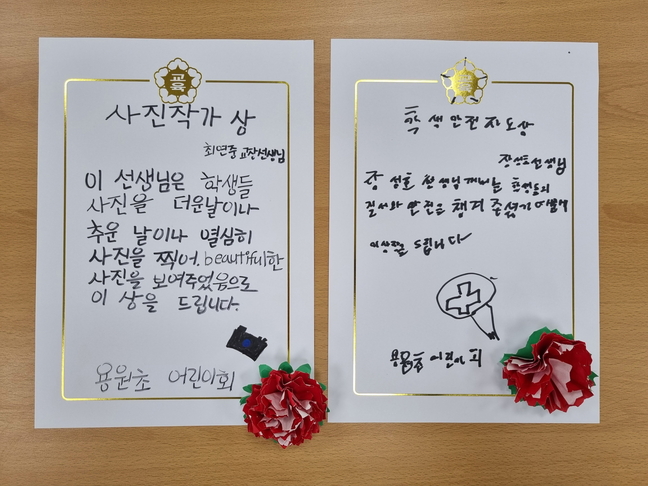 교육
사진작가 상
최연준 교장선생님
이 선생님은 학생들
사진을 더운날이나
추운 날이나 열심히
사진을 찍어. beautiful한
사진을 보여주었음으로
이 상을 드립니다.
용원초 어린이회
학생안전지도상
장성호선생님
장성호 선생님께서는 학생들의
질서와 안전을 챙겨 주셨기 때문에
이상을 드립니다
용원초 어린이회